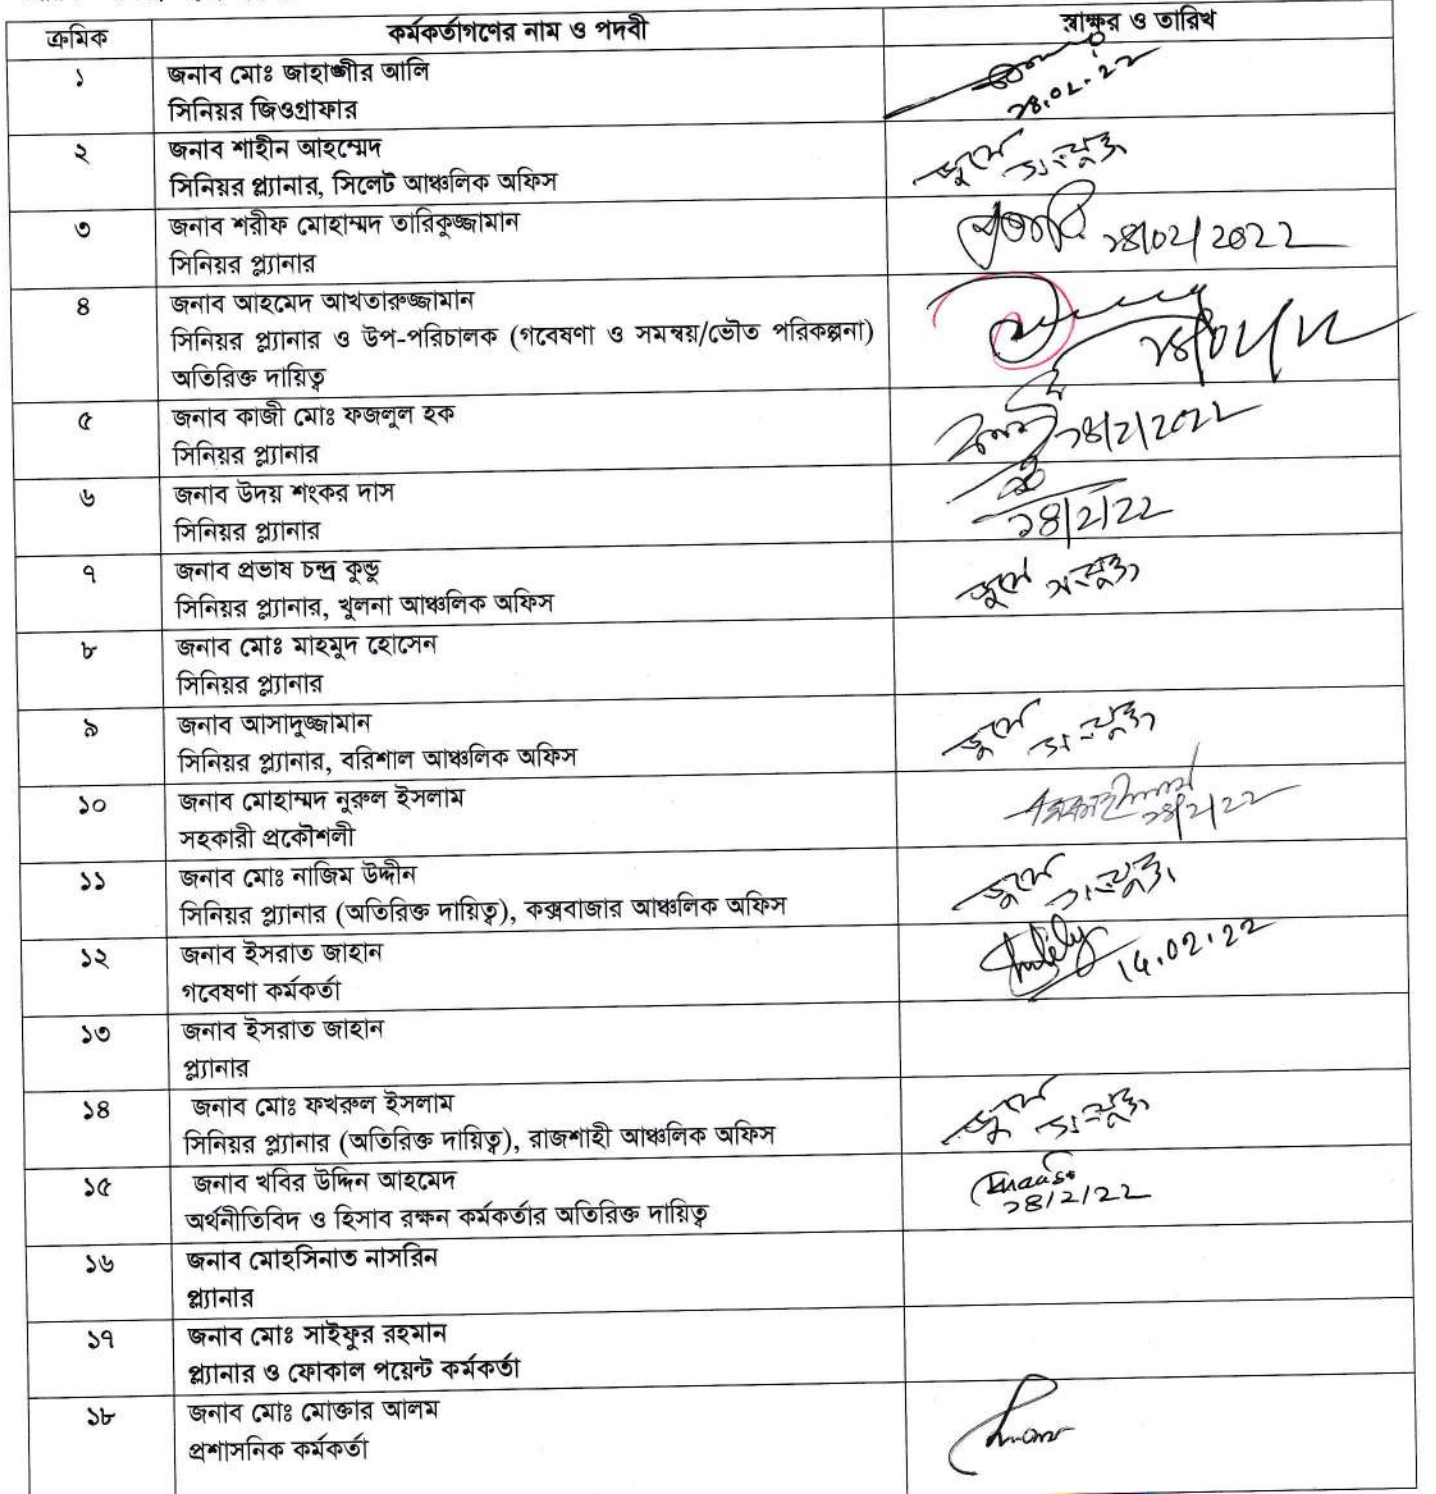 ক্রমিক কর্মকর্তাগণের নাম ও পদবী স্বাক্ষর ও তারিখ
১ জনাব মোঃ জাহাঙ্গীর আলি
সিনিয়র জিওগ্রাফার
২৪.০২.২২
২ জনাব শাহীন আহম্মেদ
সিনিয়র প্ল্যানার, সিলেট আঞ্চলিক অফিস
জুমে সংযুক্ত
৩ জনাব শরীফ মোহাম্মদ তারিকুজ্জামান
সিনিয়র প্ল্যানার
২৪/02/2022
৪ জনাব আহমেদ আখতারুজ্জামান
সিনিয়র প্ল্যানার ও উপ-পরিচালক (গবেষণা ও সমন্বয়/ভৌত পরিকল্পনা)
অতিরিক্ত দায়িত্ব
৫ জনাব কাজী মোঃ ফজলুল হক
সিনিয়র প্ল্যানার
২৪/2/2022
৬ জনাব উদয় শংকর দাস
সিনিয়র প্ল্যানার
২৪/2/22
৭ জনাব প্রভাষ চন্দ্র কুন্ডু
সিনিয়র প্ল্যানার, খুলনা আঞ্চলিক অফিস
জুমে সংযুক্ত
৮ জনাব মোঃ মাহমুদ হোসেন
সিনিয়র প্ল্যানার
৯ জনাব আসাদুজ্জামান
সিনিয়র প্ল্যানার, বরিশাল আঞ্চলিক অফিস
জুমে সংযুক্ত
১০ জনাব মোহাম্মদ নুরুল ইসলাম
সহকারী প্রকৌশলী
২৪/2/22
১১ জনাব মোঃ নাজিম উদ্দীন
সিনিয়র প্ল্যানার (অতিরিক্ত দায়িত্ব), কক্সবাজার আঞ্চলিক অফিস
জুমে সংযুক্ত
১২ জনাব ইসরাত জাহান
গবেষণা কর্মকর্তা
14.02.22
১৩ জনাব ইসরাত জাহান
প্ল্যানার
১৪ জনাব মোঃ ফখরুল ইসলাম
সিনিয়র প্ল্যানার (অতিরিক্ত দায়িত্ব), রাজশাহী আঞ্চলিক অফিস
জুমে সংযুক্ত
১৫ জনাব খবির উদ্দিন আহমেদ
অর্থনীতিবিদ ও হিসাব রক্ষন কর্মকর্তার অতিরিক্ত দায়িত্ব
২৪/2/22
১৬ জনাব মোহসিনাত নাসরিন
প্ল্যানার
১৭ জনাব মোঃ সাইফুর রহমান
প্ল্যানার ও ফোকাল পয়েন্ট কর্মকর্তা
১৮ জনাব মোঃ মোক্তার আলম
প্রশাসনিক কর্মকর্তা